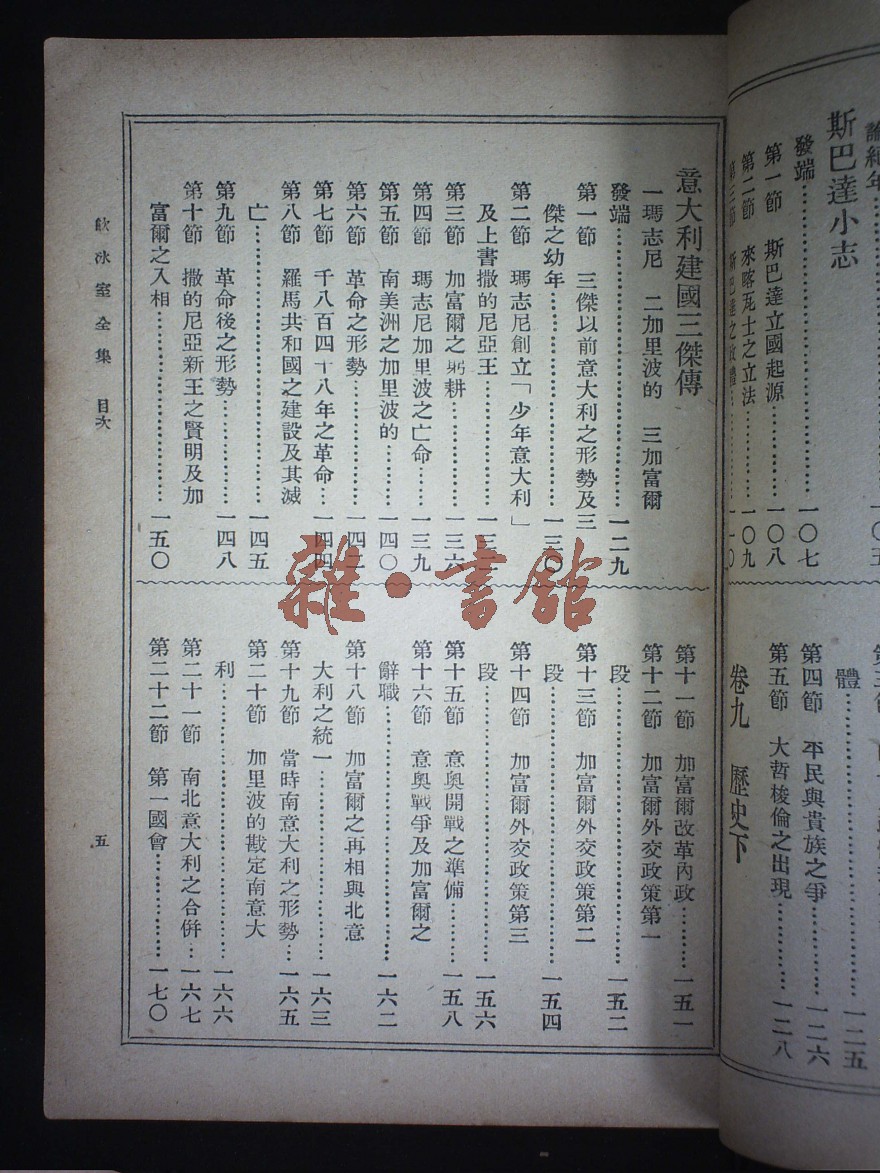 論紀年……一〇五
斯巴達小志
發端……一〇七
第一節　斯巴達立國起源……一〇八
第二節　來喀瓦士之立法……一〇九
第三節　斯巴達之政體……一一〇
體……一二五
第四節　平民與貴族之爭……一二六
第五節　大哲梭倫之出現……一二八
卷九　歷史下
意大利建國三傑傳
一瑪志尼　二加里波的　三加富爾
發端……一二九
第一節　三傑以前意大利之形勢及三
傑之幼年……一三〇
第二節　瑪志尼創立「少年意大利」
及上書撒的尼亞王……一三
第三節　加富爾之躬耕……一三六
第四節　瑪志尼加里波之亡命……一三九
第五節　南美洲之加里波的……一四〇
第六節　革命之形勢……一四二
第七節　千八百四十八年之革命…一四四
第八節　羅馬共和國之建設及其滅
亡……一四五
第九節　革命後之形勢……一四八
第十節　撒的尼亞新王之賢明及加
富爾之入相……一五〇
第十一節　加富爾改革內政……一五一
第十二節　加富爾外交政策第一
段……一五二
第十三節　加富爾外交政策第二
段……一五四
第十四節　加富爾外交政策第三
段……一五六
第十五節　意奧開戰之準備……一五八
第十六節　意奧戰爭及加富爾之
辭職……一六二
第十八節　加富爾之再相與北意
大利之統一……一六三
第十九節　當時南意大利之形勢…一六五
第二十節　加里波的戡定南意大
利……一六六
第二十一節　南北意大利之合併…一六七
第二十二節　第一國會……一七〇
飲冰室全集　目次
五
雜·書館